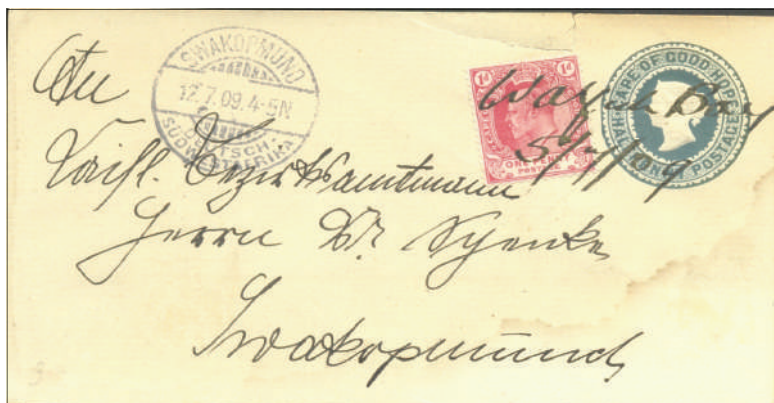 SWAKOPMUND
12.7.09.4-5N
DEUTSCH-
SÜDWESTAFRIKA
1d 1d
ONE PENNY
POSTAGE
CAPE OF GOOD HOPE
HALF PENNY POSTAGE
Walfish Bay
5/VII/09
An
Kaiserl. Bezirksamtmann
Herrn Dr. Schenke
Swakopmund